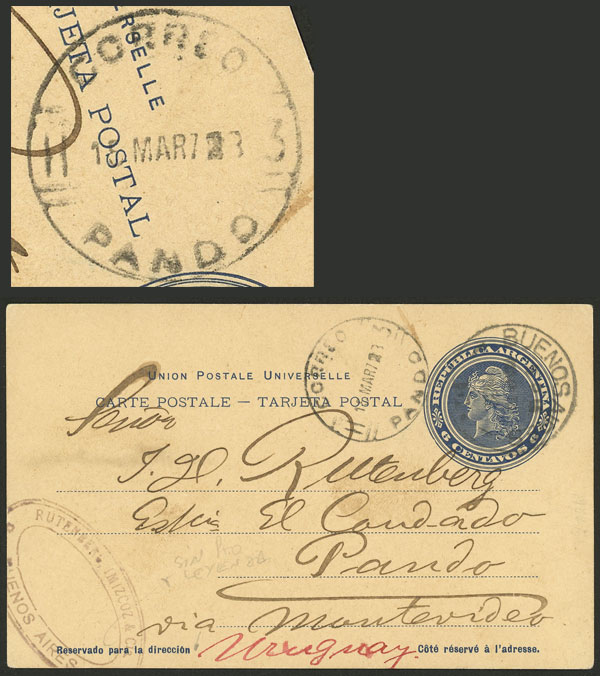 CORREO
ERSELLE
JETA POSTAL
MAR 7 23
3
PANDO
CORREO
MAR 7 23
PANDO
BUENOS A
REPUBLICA ARGENTINA
6 CENTAVOS 6
UNION POSTALE UNIVERSELLE
CARTE POSTALE — TARJETA POSTAL
Señor
J. H. Rutenberg
El Condado
Pando
via Montevideo
Uruguay
BUENOS AIRES
Reservado para la dirección
Côté réservé à l'adresse.